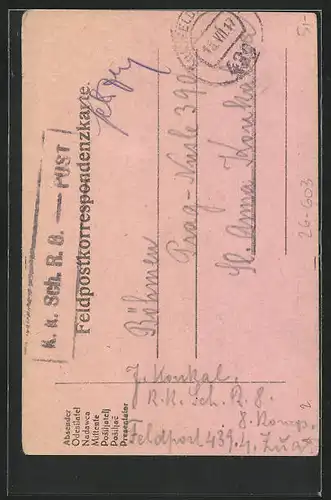 Feldpostkorrespondenzkarte.
K. k. Sch. R. 8. — POST
13.VII.17
439
Anna Konkal
Prag - Nusle 390
Böhmen
Absender
Odesilatel
Nadawca
Mittente
Pošiljatelj
Pošiljač
J. Konkal
K.K. Sch. R. 8.
8. Komp.
Feldpost 439. 4. Zug
26-603
2.
51-